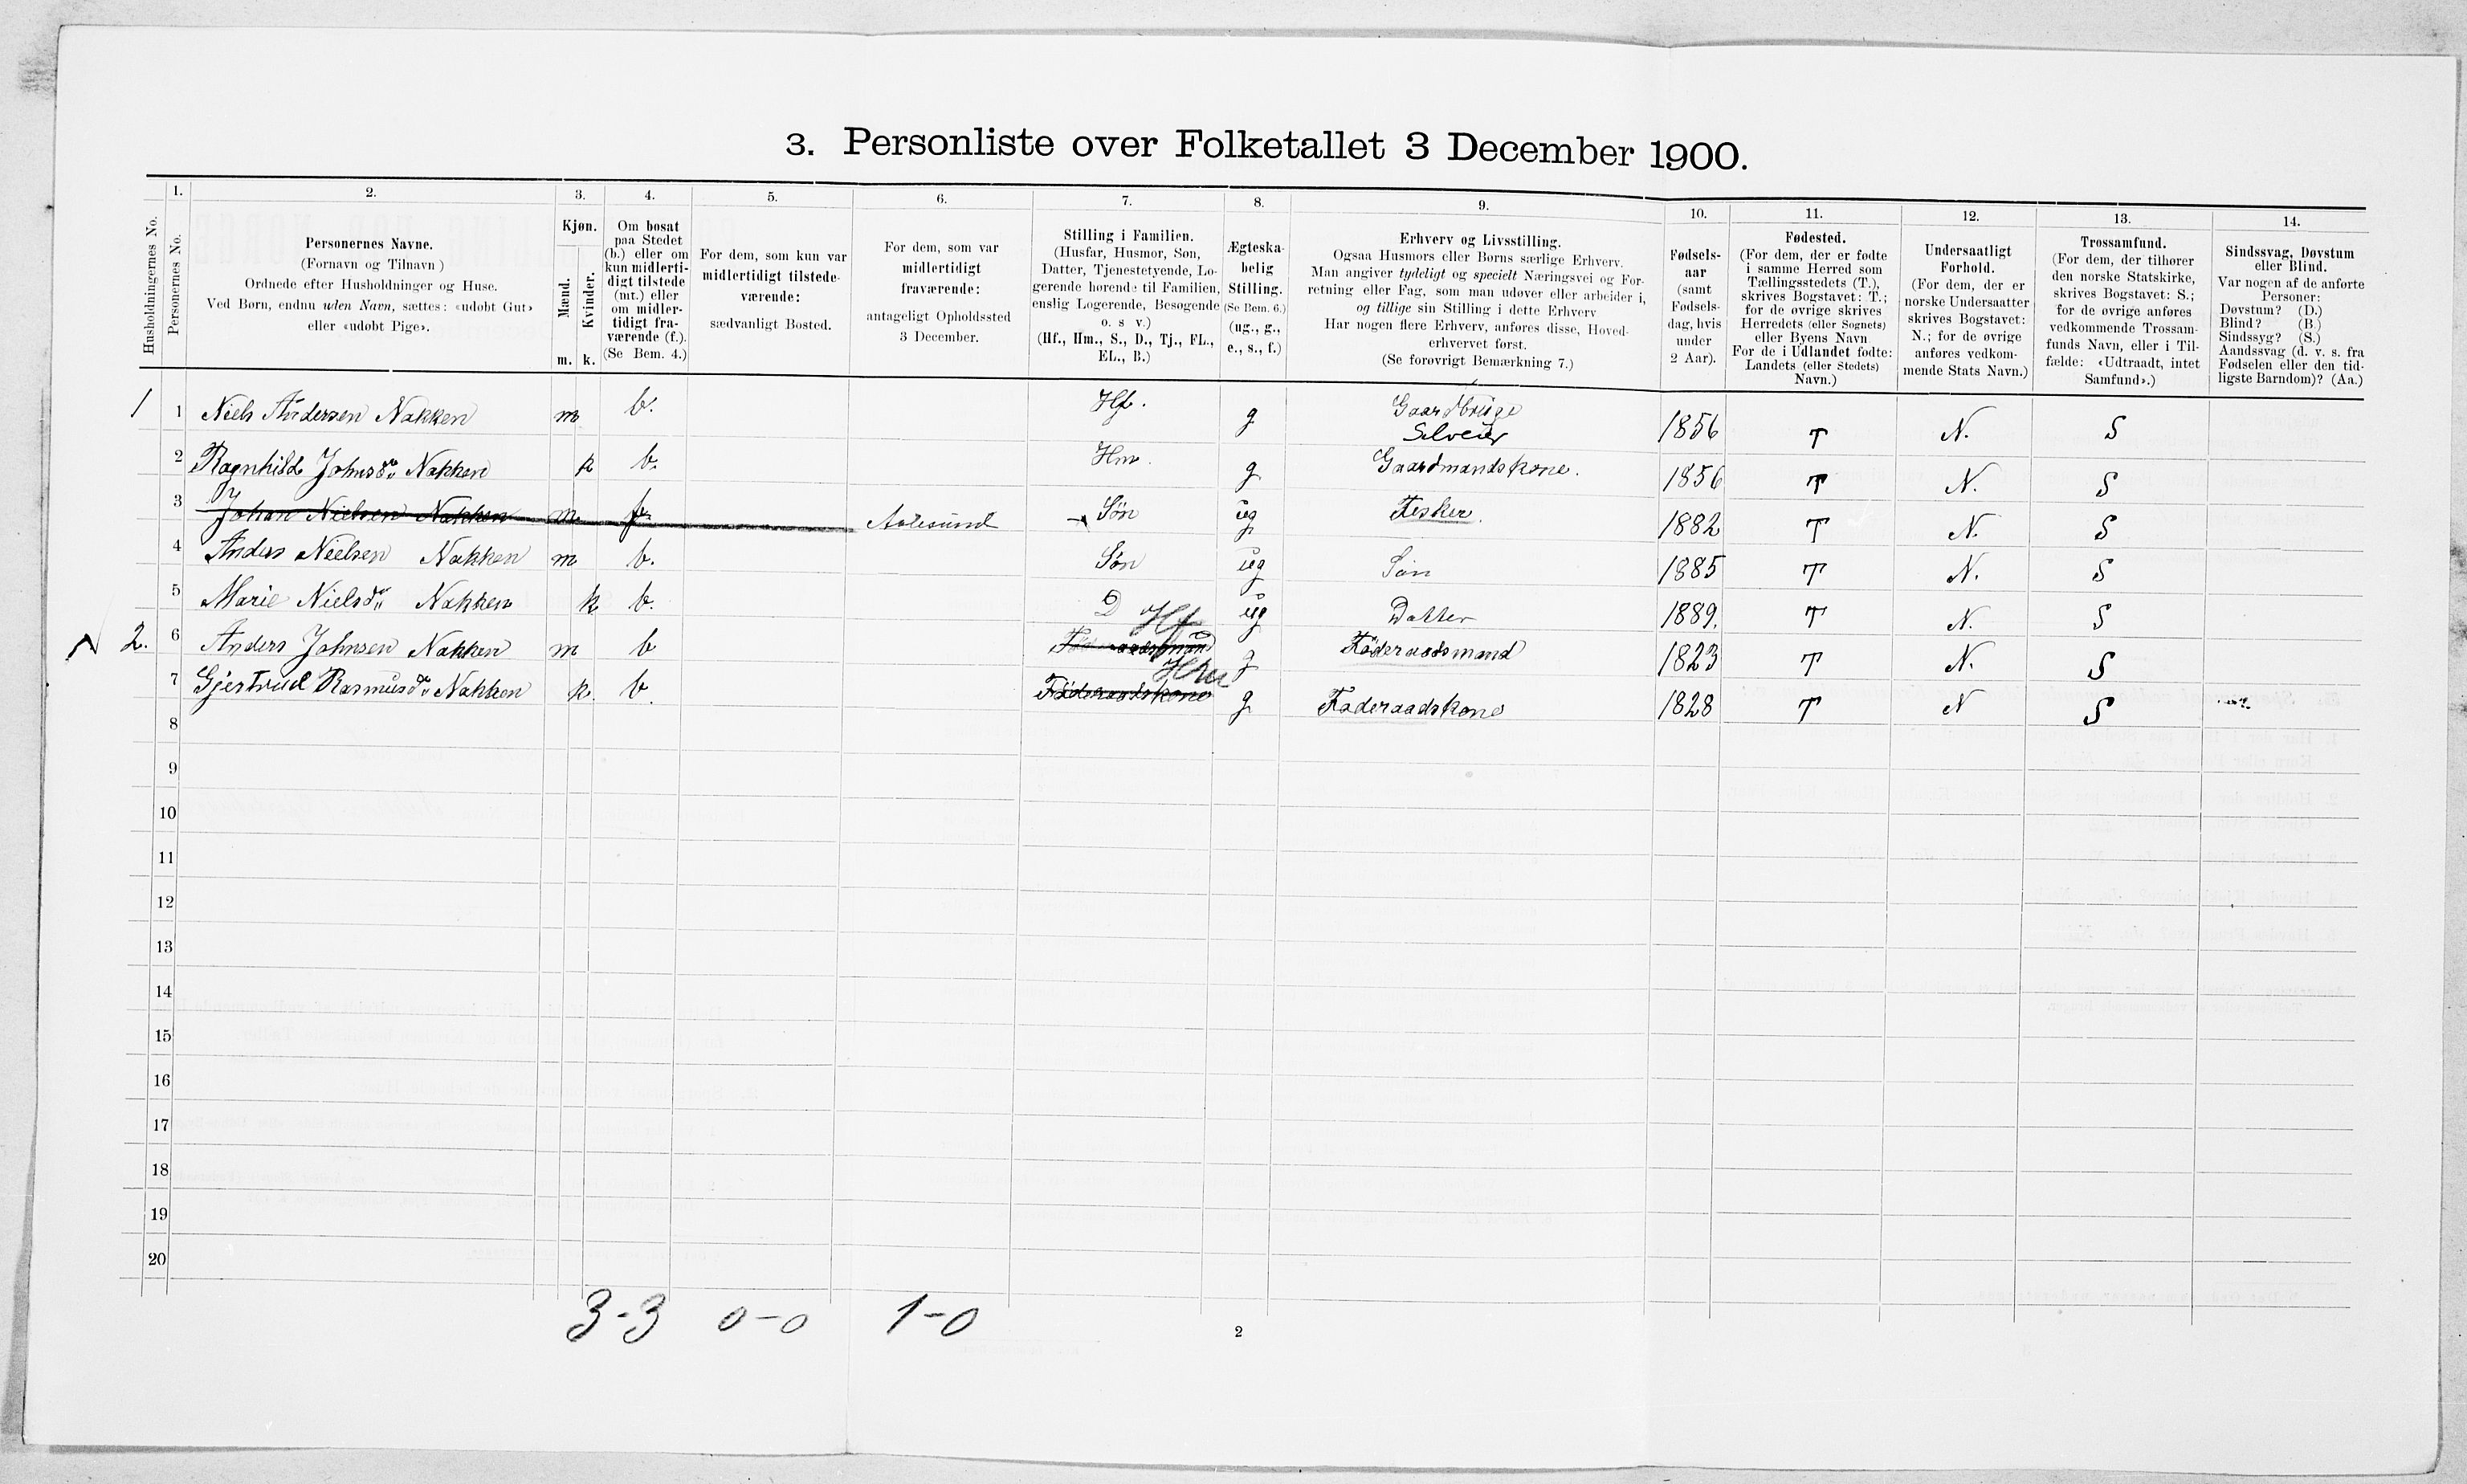 3. Personliste over Folketallet 3 December 1900.
Husholdningernes No.
1.
Personernes No.
2.
Personernes Navne.
(Fornavn og Tilnavn)
Ordnede efter Husholdninger og Huse.
Ved Børn, endnu uden Navn, sættes: «udøbt Gut»
eller «udøbt Pige».
3.
Kjøn.
Mænd.
Kvinder.
m. k.
4.
Om bosat
paa Stedet
(b.) eller om
kun midlerti-
digt tilstede
(mt.) eller
om midler-
tidigt fra-
værende (f.).
(Se Bem. 4.)
5.
For dem, som kun var
midlertidigt tilstede-
værende:
sædvanligt Bosted.
6.
For dem, som var
midlertidigt
fraværende:
antageligt Opholdssted
3 December.
7.
Stilling i Familien.
(Husfar, Husmor, Søn,
Datter, Tjenestetyende, Lo-
gerende hørende til Familien,
enslig Logerende, Besøgende
o. s v.)
(Hf., Hm., S., D., Tj., FL.,
EL., B.)
8.
Ægteska-
belig
Stilling.
(Se Bem. 6.)
(ug., g.,
e., s., f.)
9.
Erhverv og Livsstilling.
Ogsaa Husmors eller Børns særlige Erhverv.
Man angiver tydeligt og specielt Næringsvei og For-
retning eller Fag, som man udøver eller arbeider i,
og tillige sin Stilling i dette Erhverv
Har nogen flere Erhverv, anføres disse, Hoved-
erhvervet først.
(Se forøvrigt Bemærkning 7.)
10.
Fødsels-
aar
(samt
Fødsels-
dag, hvis
under
2 Aar).
11.
Fødested.
(For dem, der er fødte
i samme Herred som
Tællingsstedets (T.),
skrives Bogstavet: T.;
for de øvrige skrives
Herredets (eller Sognets)
eller Byens Navn
For de i Udlandet fødte:
Landets (eller Stedets)
Navn.)
12.
Undersaatligt
Forhold.
(For dem, der er
norske Undersaatter
skrives Bogstavet:
N.; for de øvrige
anføres vedkom-
mende Stats Navn.)
13.
Trossamfund.
(For dem, der tilhører
den norske Statskirke,
skrives Bogstavet: S.;
for de øvrige anføres
vedkommende Trossam-
funds Navn, eller i Til-
fælde: «Udtraadt, intet
Samfund».)
14.
Sindssvag, Døvstum
eller Blind.
Var nogen af de anførte
Personer:
Døvstum? (D.)
Blind? (B.)
Sindssyg? (S.)
Aandssvag (d. v. s. fra
Fødselen eller den tid-
ligste Barndom)? (Aa.)
1 1 Niels Andersen Nakken m b. Hf. g Gaardbruge Selveier 1856 T N. S
2 Ragnhild Johnsdr Nakken k b. Hm. g Gaardmandskone. 1856 T N. S
3 Johan Nielsen Nakken m f. Aalesund Søn ug Fisker 1882 T N. S
4 Anders Nielsen Nakken m b. Søn ug Søn 1885 T N. S
5 Marie Nielsdr Nakken k b. D ug Datter 1889. T N. S
2. 6 Anders Johnsen Nakken m b Hf g Föderaadsmand 1823 T N. S
7 Gjertrud Rasmusdr Nakken k. b. Föderaadskone Hm g Föderaadskone 1828 T N S
8
9
10
11
12
13
14
15
16
17
18
19
20
3-3 0-0 1-0
2